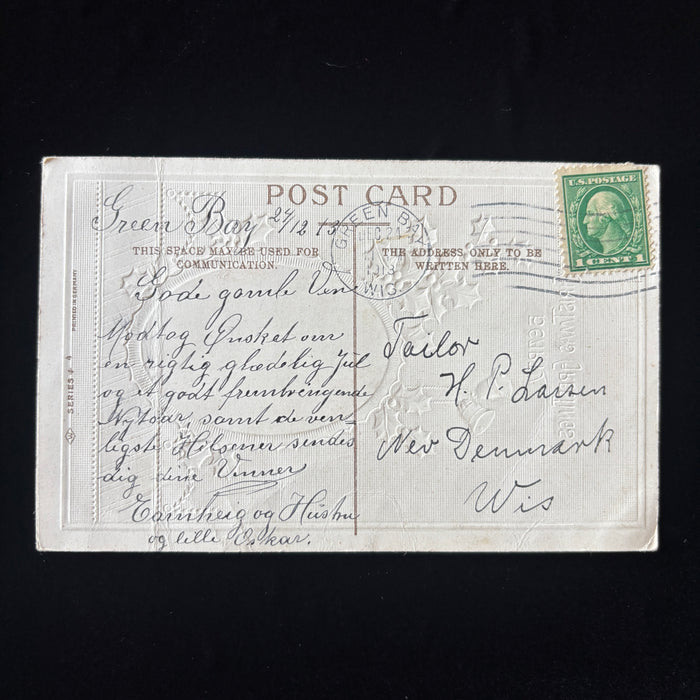 POST CARD
Green Bay 24/12 13
GREEN BAY
DEC 24
1913
WIS.
U.S. POSTAGE
1 CENT 1
THIS SPACE MAY BE USED FOR
COMMUNICATION.
THE ADDRESS ONLY TO BE
WRITTEN HERE.
Gode gamle Ven
Modtag Ønsket om
en rigtig glædelig Jul
og et godt frembringende
Nytaar, samt de ven-
ligste Hilsener sendes
dig dine Venner
og Hustru
og lille Oskar.
Tailor
H. P. Larsen
New Denmark
Wis
PRINTED IN GERMANY
SERIES P 4